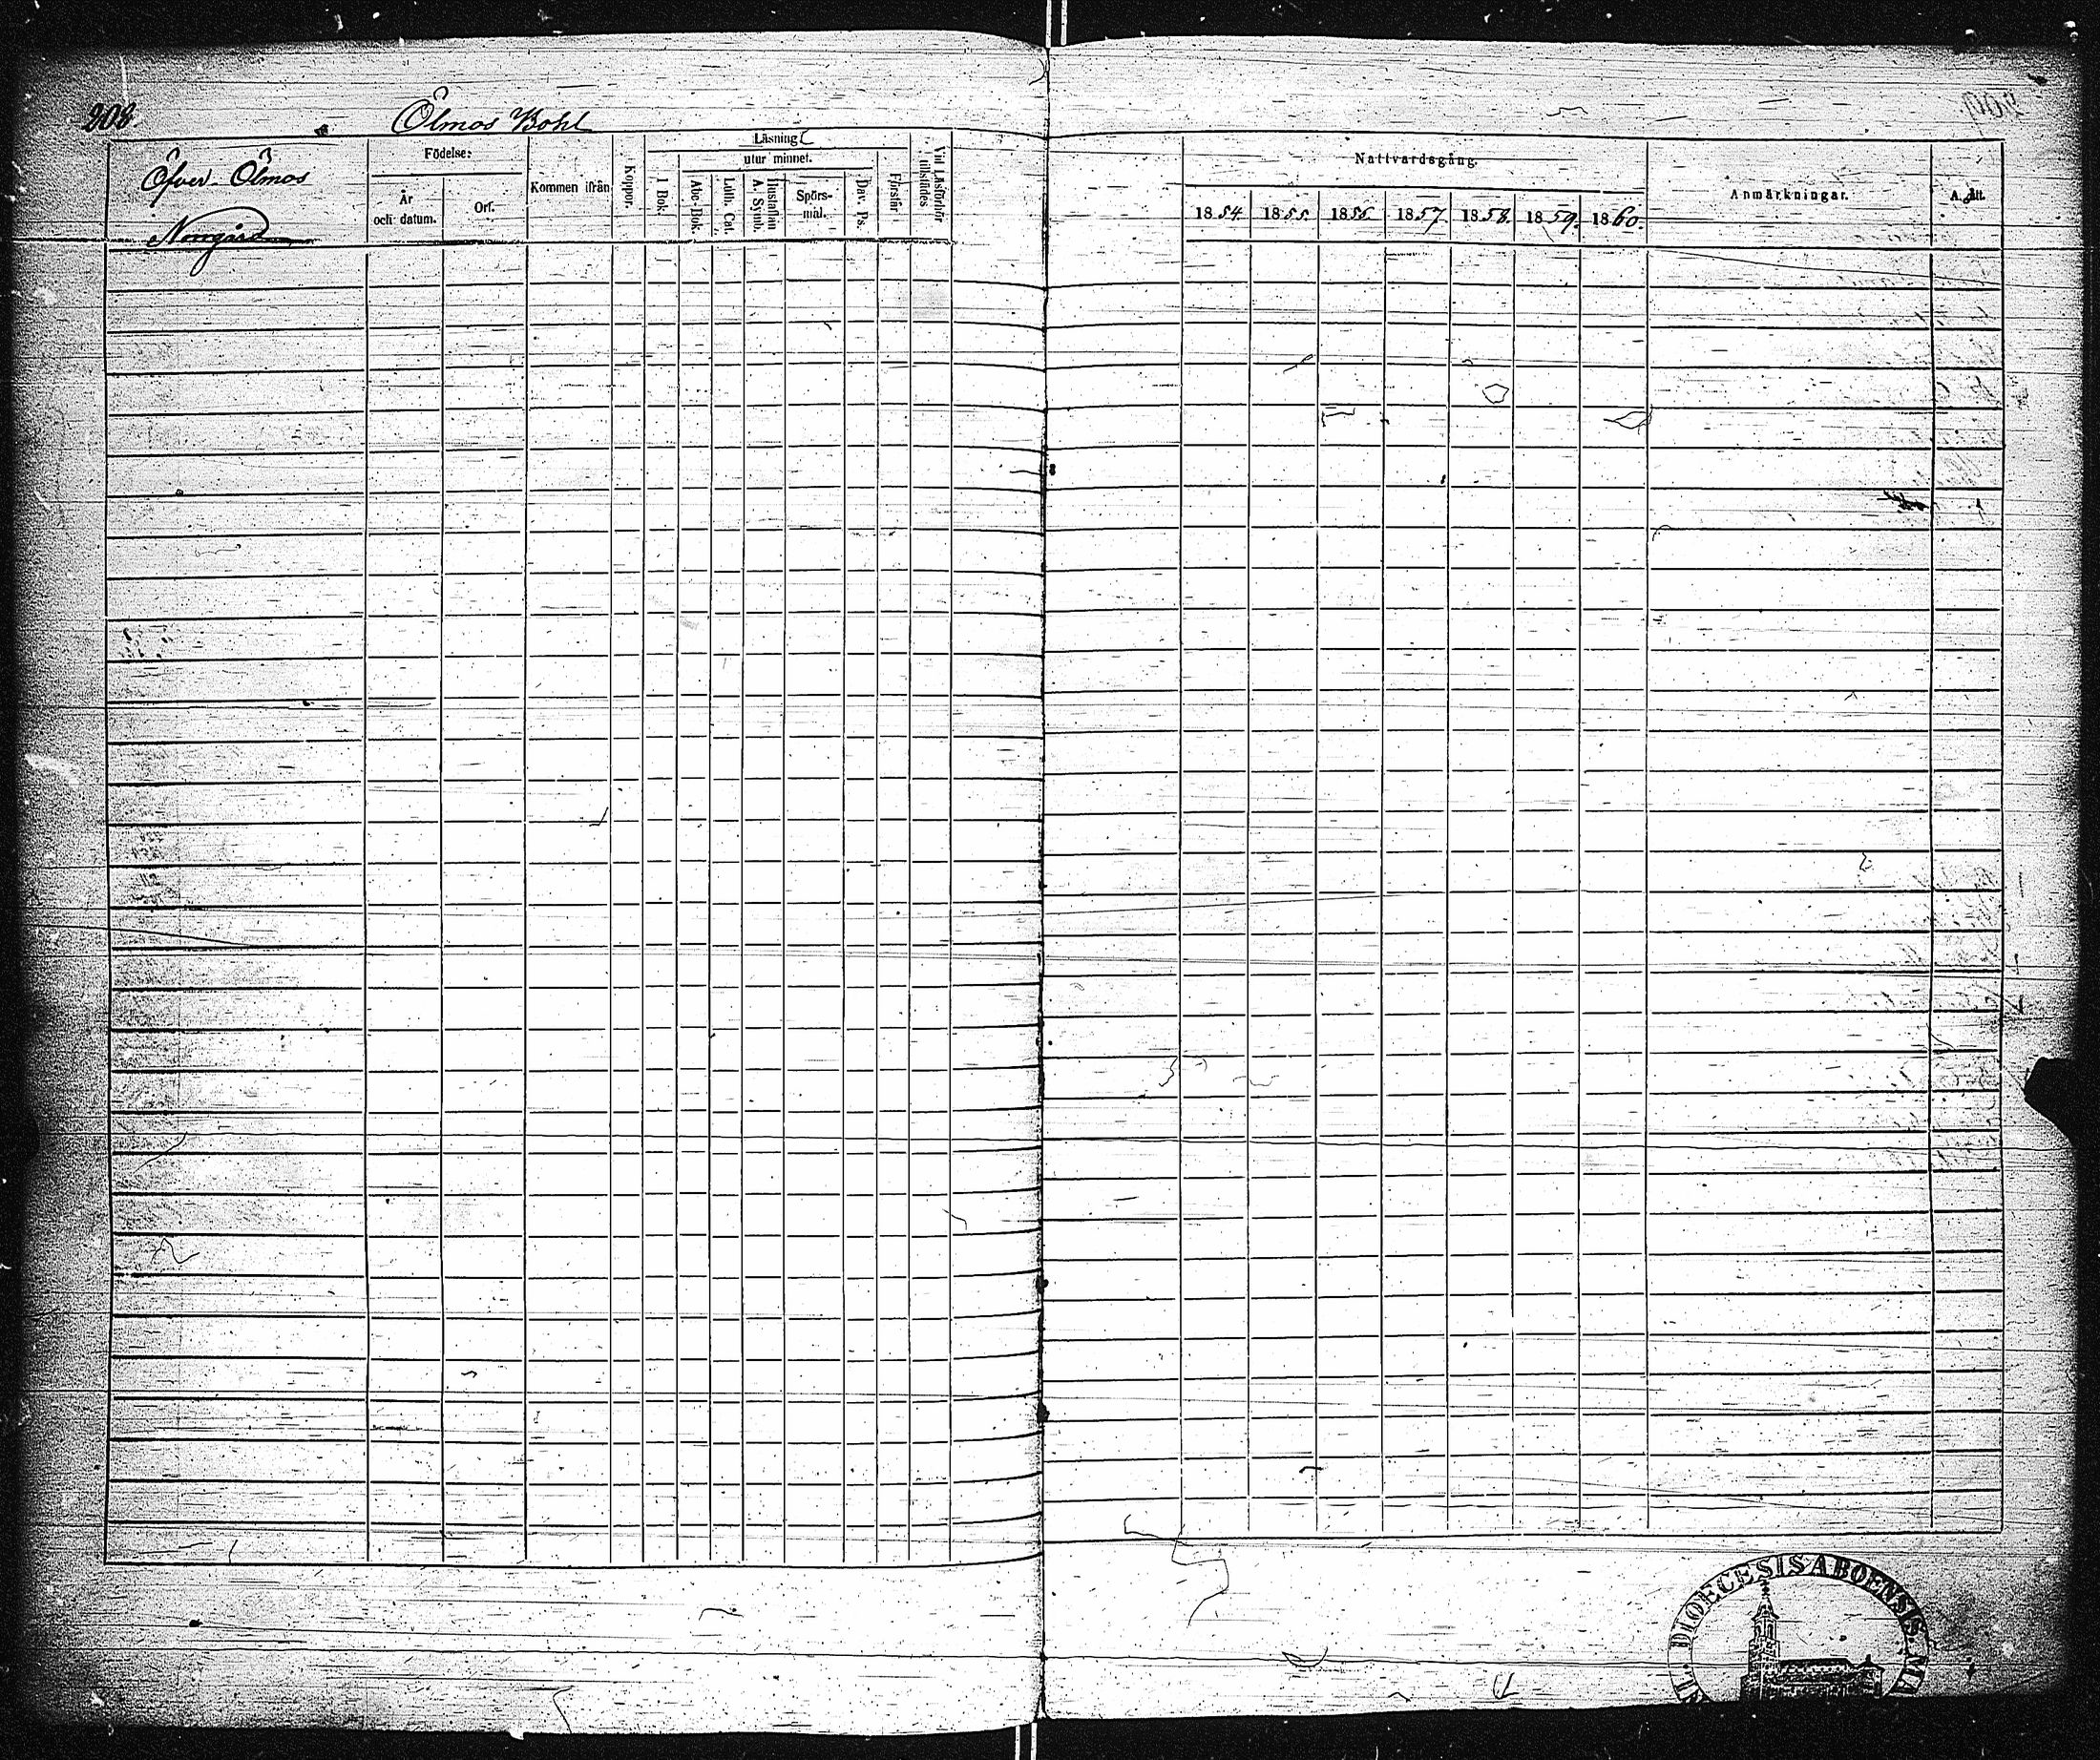 208.
Ölmos Bohl
Öfver-Ölmos
Norrgård
Födelse:
År
och datum.
Ort.
Kommen ifrån
Koppor.
Läsning
utur minnet.
I Bok.
Abc-Bok.
Luth. Cat.
Hustaflan
A. Symb.
Spörs-
mål.
Dav. Ps.
Förstår
Vid Läsförhör
tillstädes
Nattvardsgång.
1854 1855. 1856. 1857 1858. 1859. 1860.
Anmärkningar.
DIOECESIS ABOENSIS.